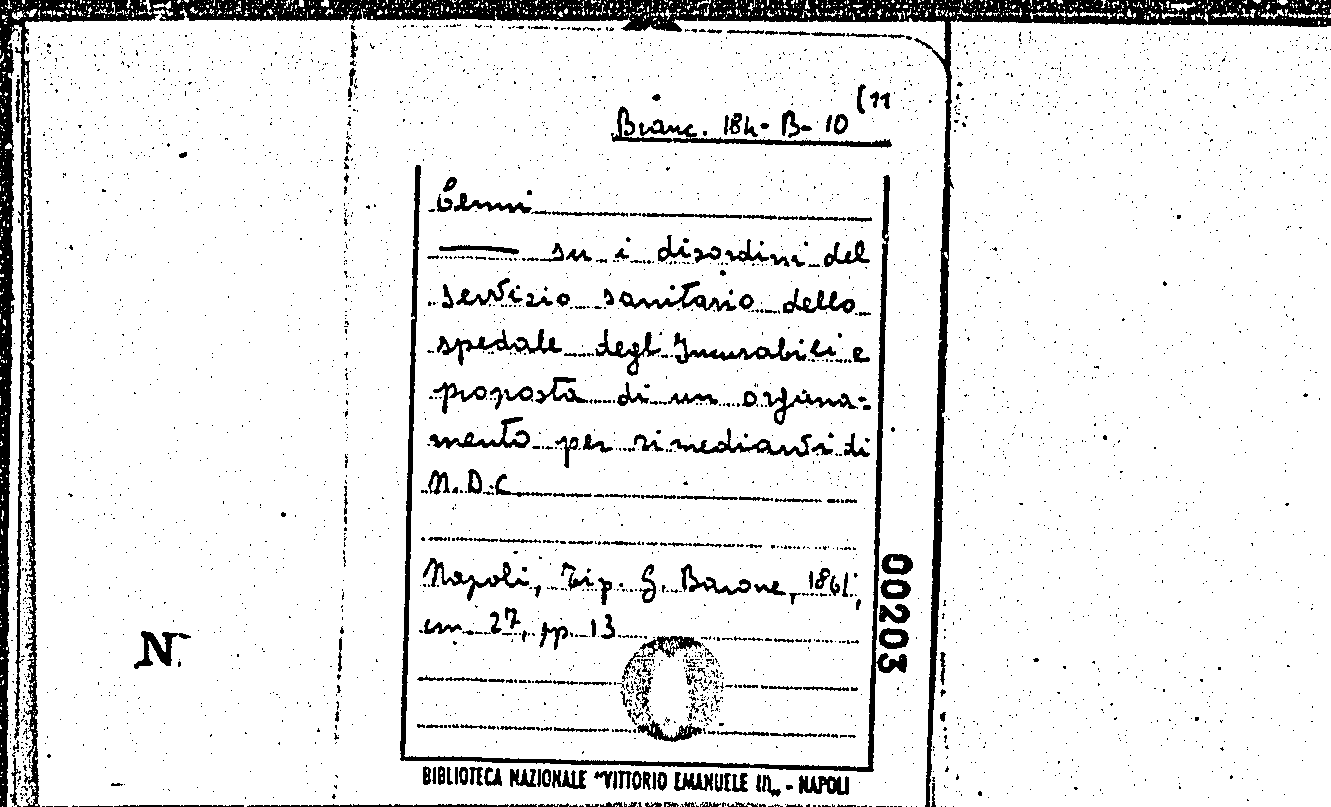 (11
Branc. 184- B- 10
Cenni
su i disordini del
servizio sanitario dello
spedale degl'Incurabili e
proposta di un organa=
mento per rimediarvi di
N.D.C.
Napoli, Tip. G. Barone, 1861,
cm. 27, pp. 13
00203
N.
BIBLIOTECA NAZIONALE "VITTORIO EMANUELE III„ - NAPOLI